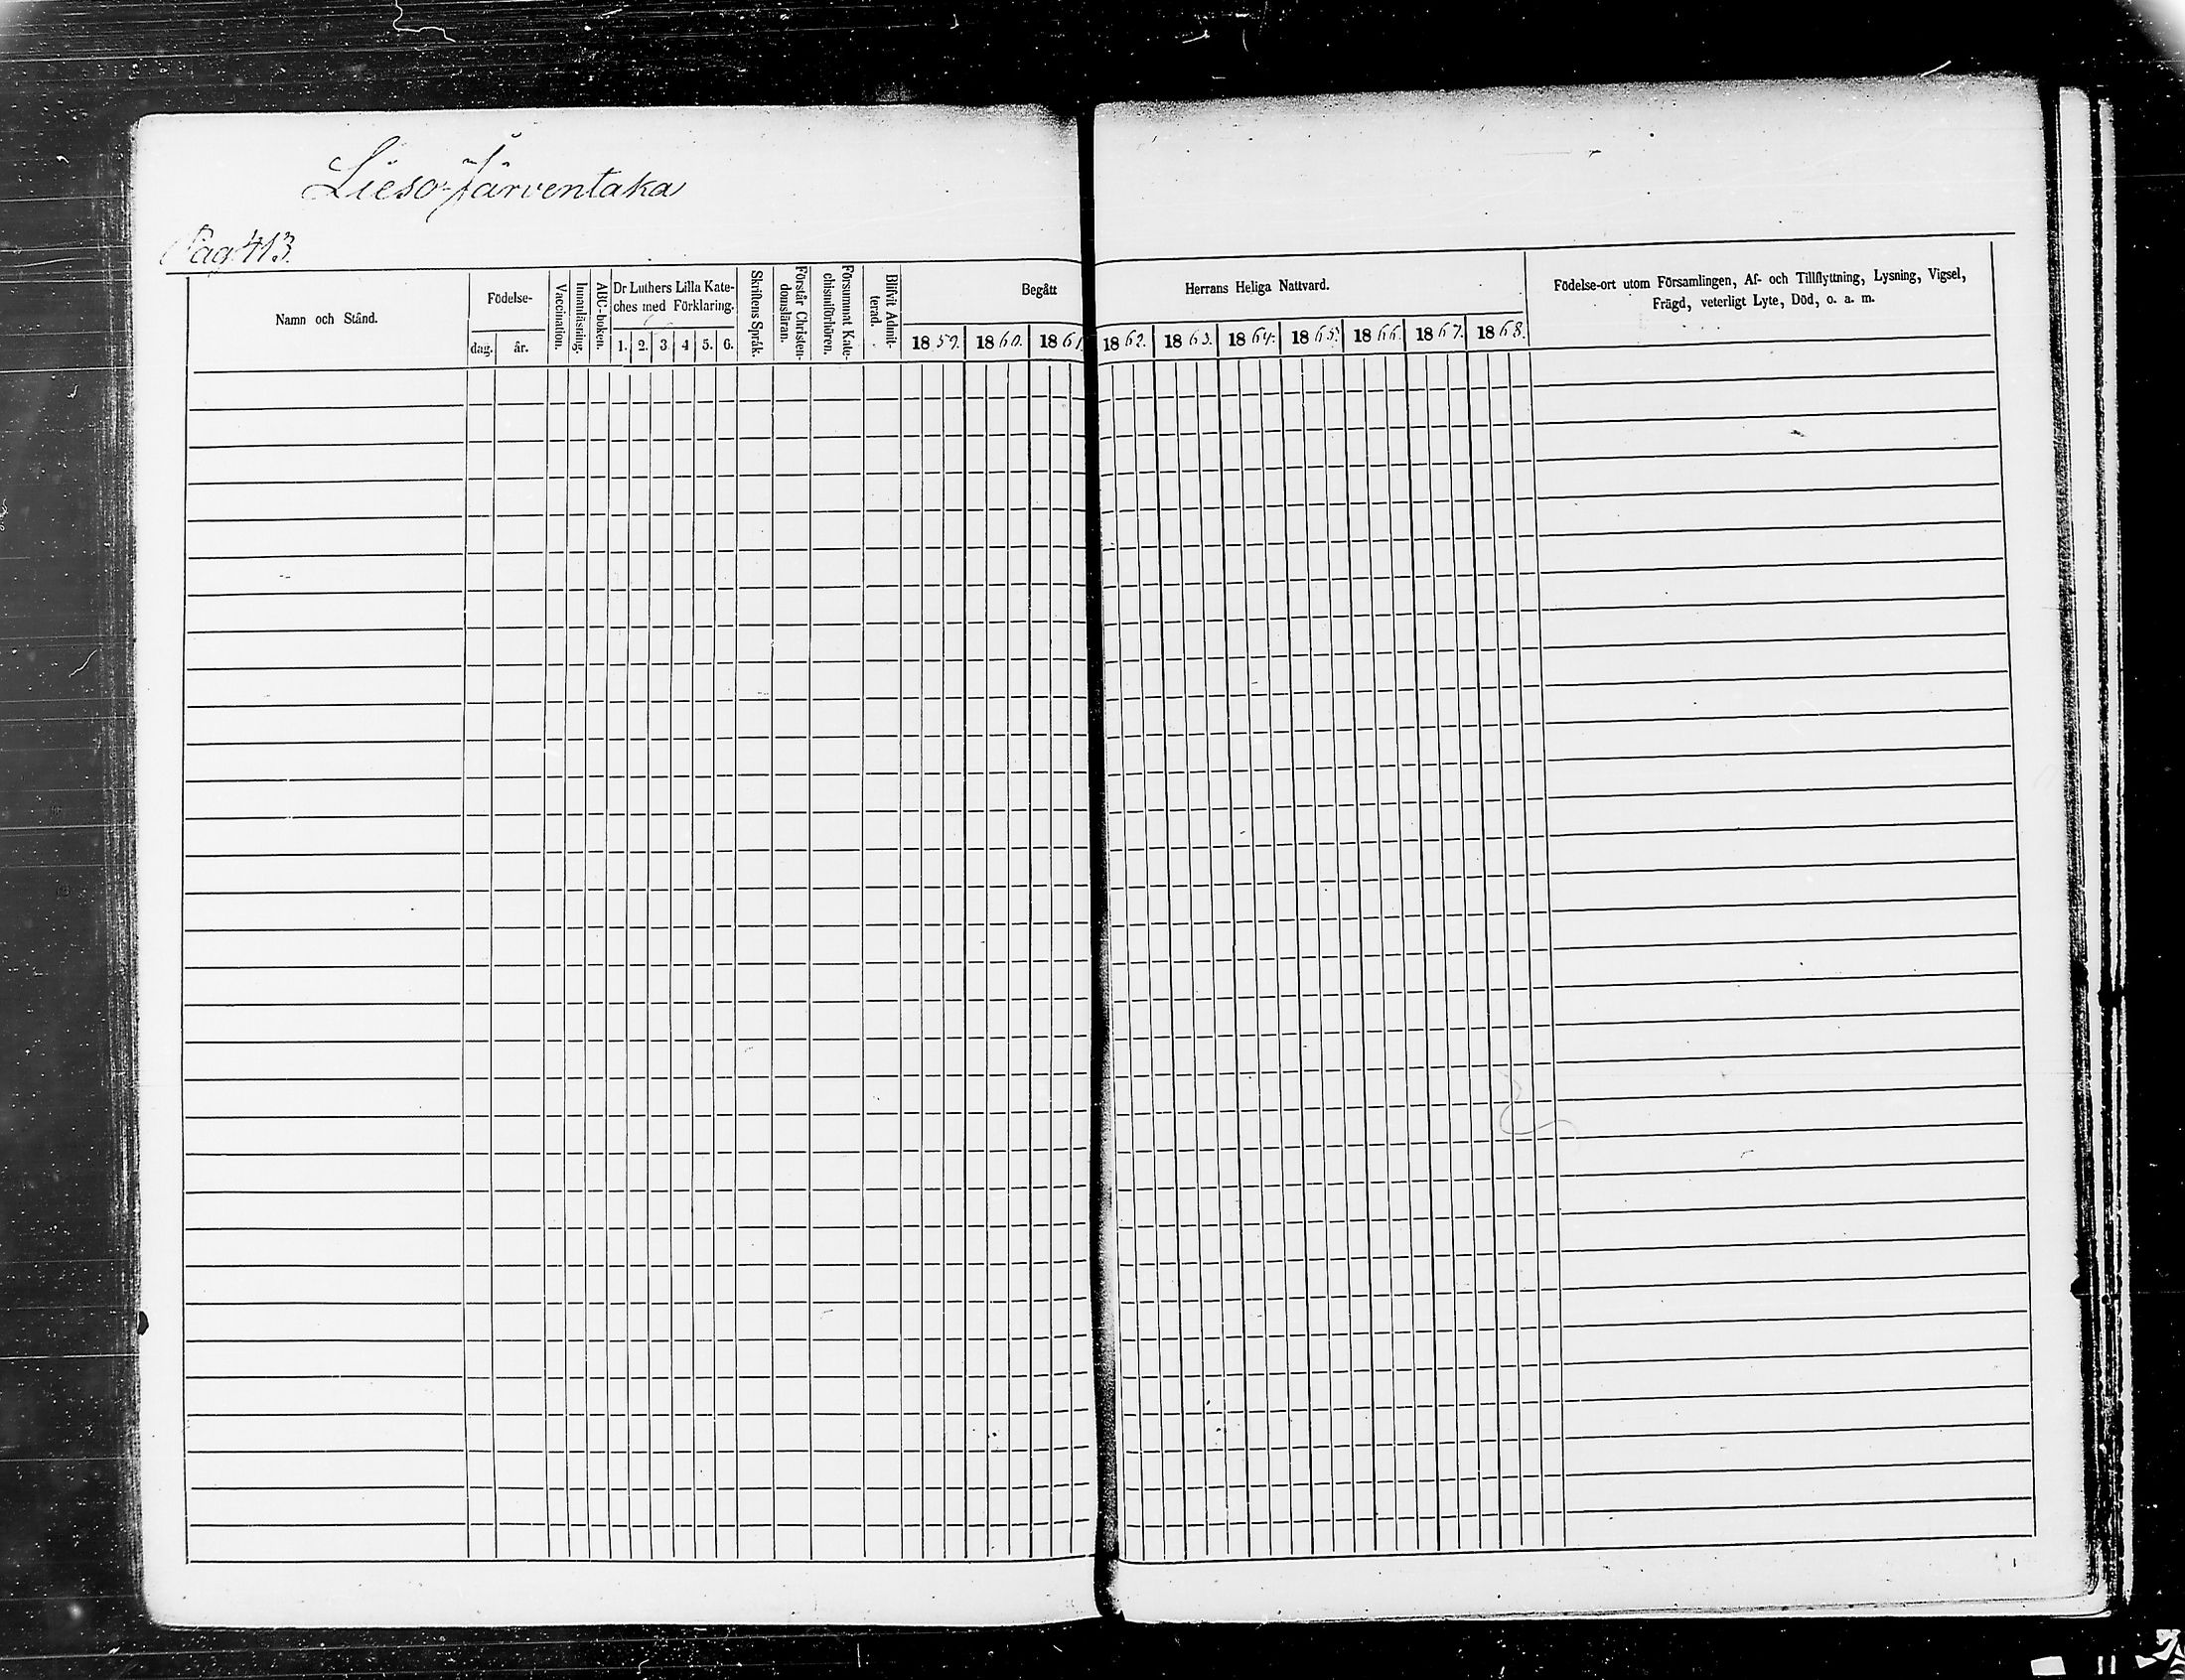 Lieso-Järventaka
Pag 413.
Namn och Stånd.
Födelse-
dag.
år.
Vaccination.
Innanläsning.
ABC-boken.
Dr Luthers Lilla Kate-
ches med Förklaring.
1. 2. 3. 4 5. 6.
Skriftens Språk.
Förstår Christen-
domsläran.
Försummat Kate-
chismiförhören.
Blifvit Admit-
terad.
Begått Herrans Heliga Nattvard.
1859. 1860. 1861 1862. 1863. 1864. 1865. 1866. 1867. 1868.
Födelse-ort utom Församlingen, Af- och Tillflyttning, Lysning, Vigsel,
Frägd, veterligt Lyte, Död, o. a. m.